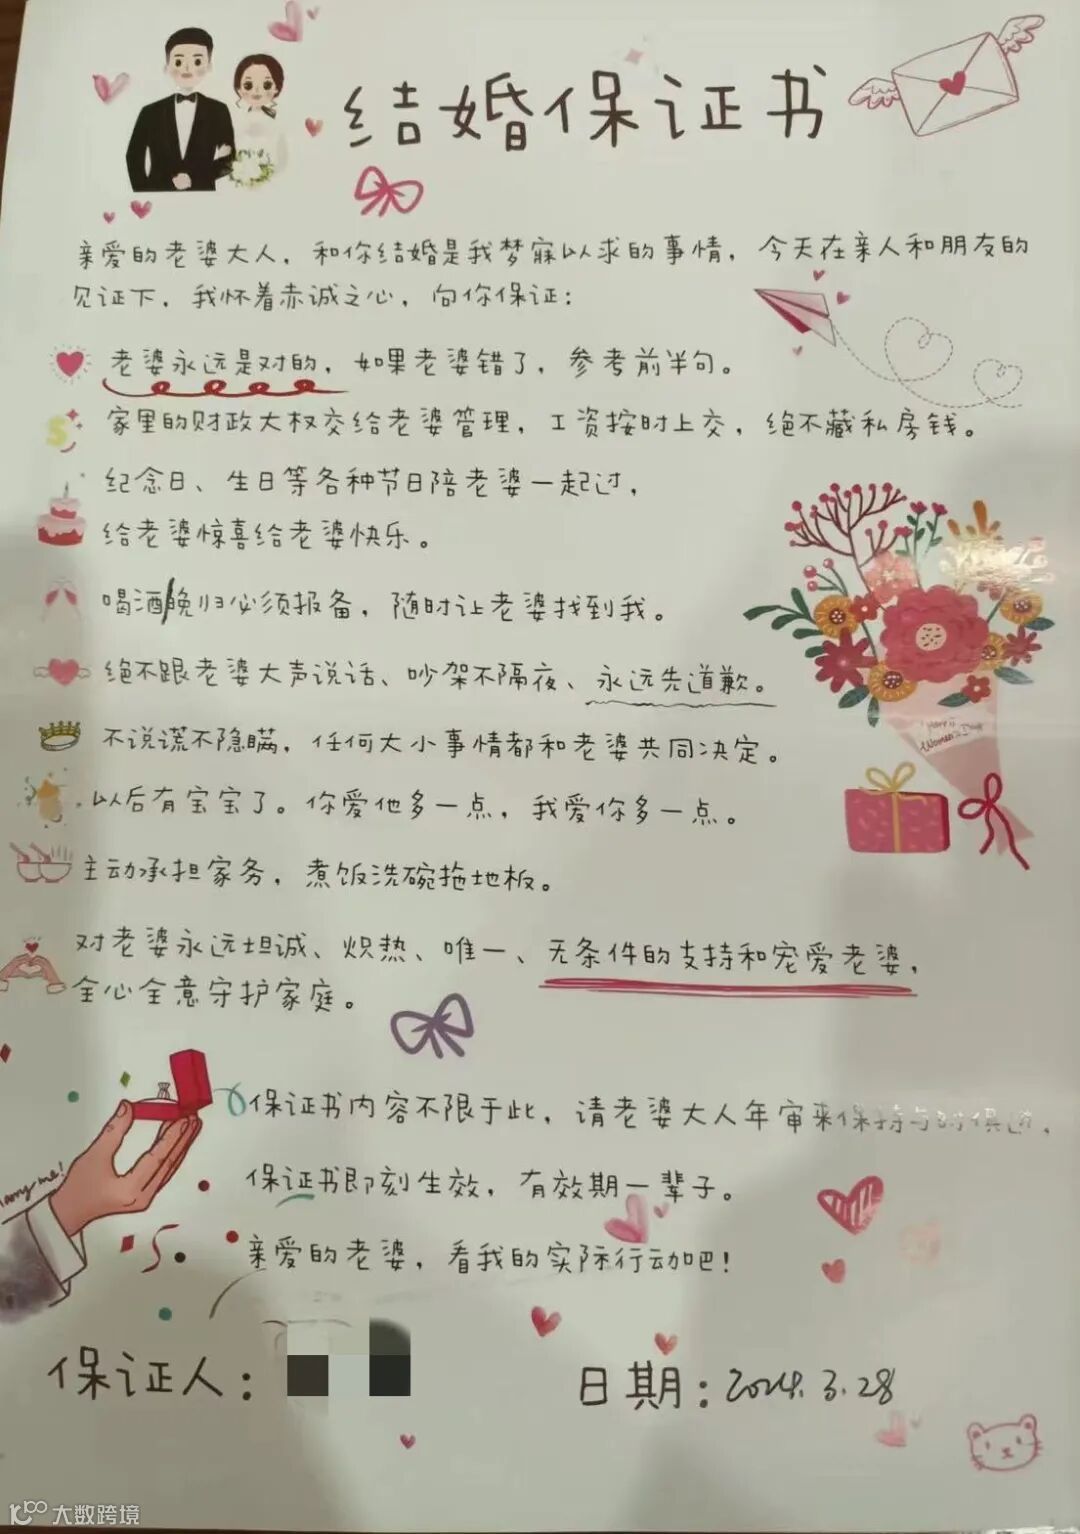 结婚保证书
亲爱的老婆大人，和你结婚是我梦寐以求的事情，今天在亲人和朋友的
见证下，我怀着赤诚之心，向你保证：
老婆永远是对的，如果老婆错了，参考前半句。
家里的财政大权交给老婆管理，工资按时上交，绝不藏私房钱。
纪念日、生日等各种节日陪老婆一起过，
给老婆惊喜给老婆快乐。
喝酒/晚归必须报备，随时让老婆找到我。
绝不跟老婆大声说话、吵架不隔夜、永远先道歉。
不说谎不隐瞒，任何大小事情都和老婆共同决定。
以后有宝宝了。你爱他多一点，我爱你多一点。
主动承担家务，煮饭洗碗拖地板。
对老婆永远坦诚、炽热、唯一、无条件的支持和宠爱老婆，
全心全意守护家庭。
Women's Day
保证书内容不限于此，请老婆大人年审来保持与时俱进，
marry me!
保证书即刻生效，有效期一辈子。
亲爱的老婆，看我的实际行动加吧！
保证人：
日期：2024.3.28
大数跨境